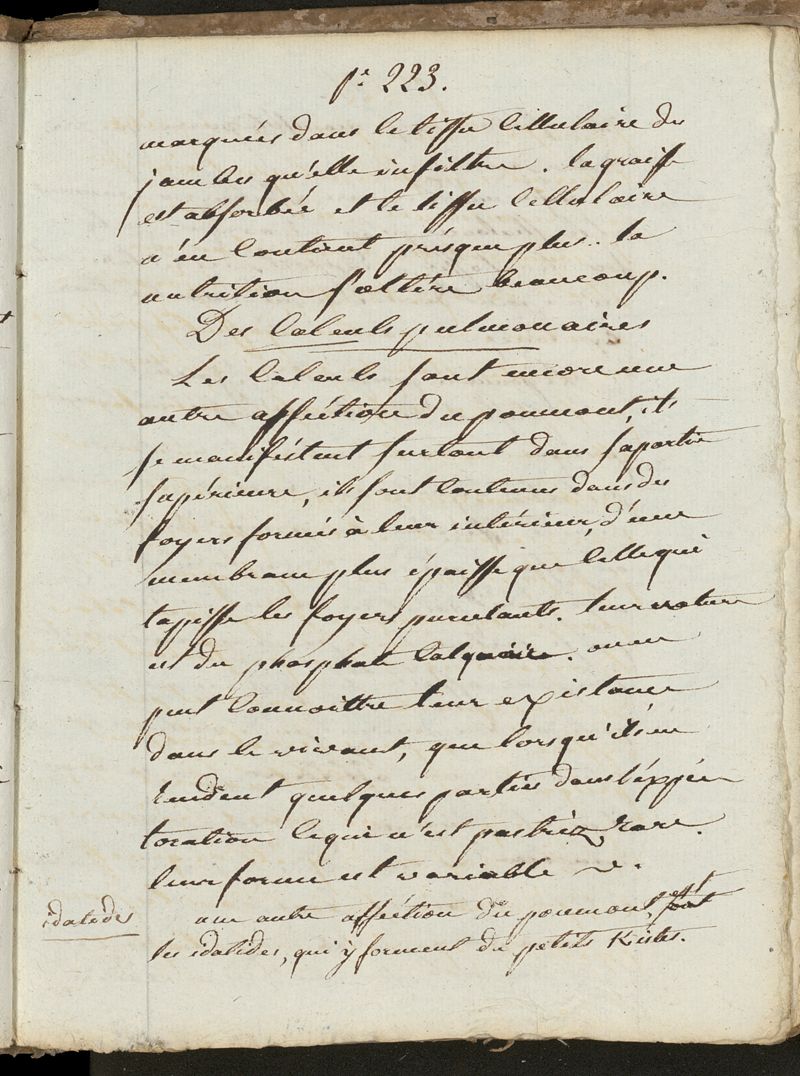 pe. 223.
marquées dans le tissu cellulaire des
jambes qu'elle infiltre. la graisse
est absorbée et le tissu cellulaire
n'en contient présque plus.. la
nutrition s'altére beaucoup.
Des Calculs pulmonaires
Les Calculs sont encore une
autre afféction du poumont, ils
se maniféstent surtout dans sa partie
supérieure, ils sont contenus dans des
foyers formés à leur intérieur, d'une
membrane plus épaisse que celle qui
tapisse les foyers purulants. leur nature
est du phosphate calquaire. on en
peut connoittre leur existance
dans le vivant, que lorsqu'ils en
rendent quelques parties dans l'éxpéc
toration ce qui n'est pas trèz rare.
leur forme est variable
idatides
une autre afféction du poumont, est
les idatides, qui y forment de petits Kistes.